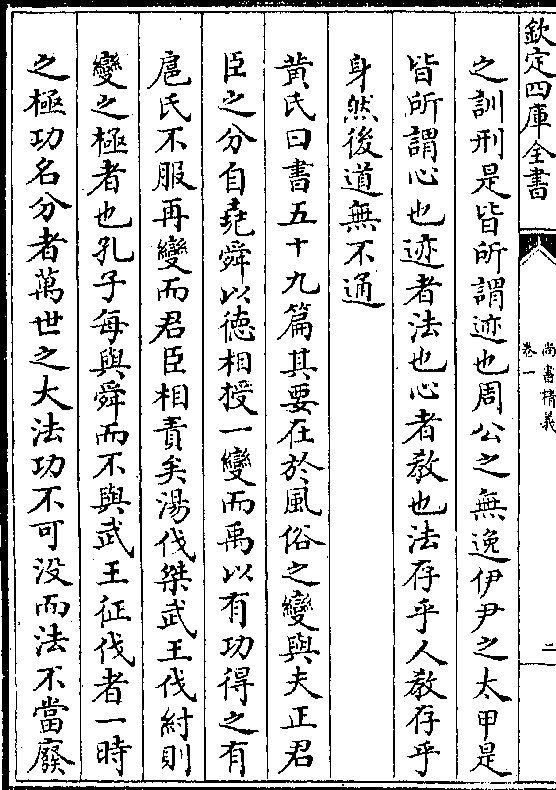 欽定四庫全書
尚書精義
卷一
二
之訓刑是皆所謂迹也周公之無逸伊尹之太甲是
皆所謂心也迹者法也心者教也法存乎人教存乎
身然後道無不通
黄氏曰書五十九篇其要在於風俗之變與夫正君
臣之分自堯舜以德相授一變而禹以有功得之有
扈氏不服再變而君臣相責矣湯伐桀武王伐紂則
變之極者也孔子每與舜而不與武王征伐者一時
之極功名分者萬世之大法功不可没而法不當廢